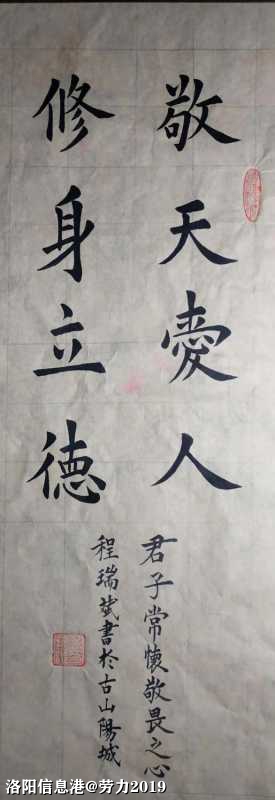 敬天愛人
修身立德
君子常懷敬畏之心
程瑞斌書於古山陽城
洛阳信息港@劳力2019